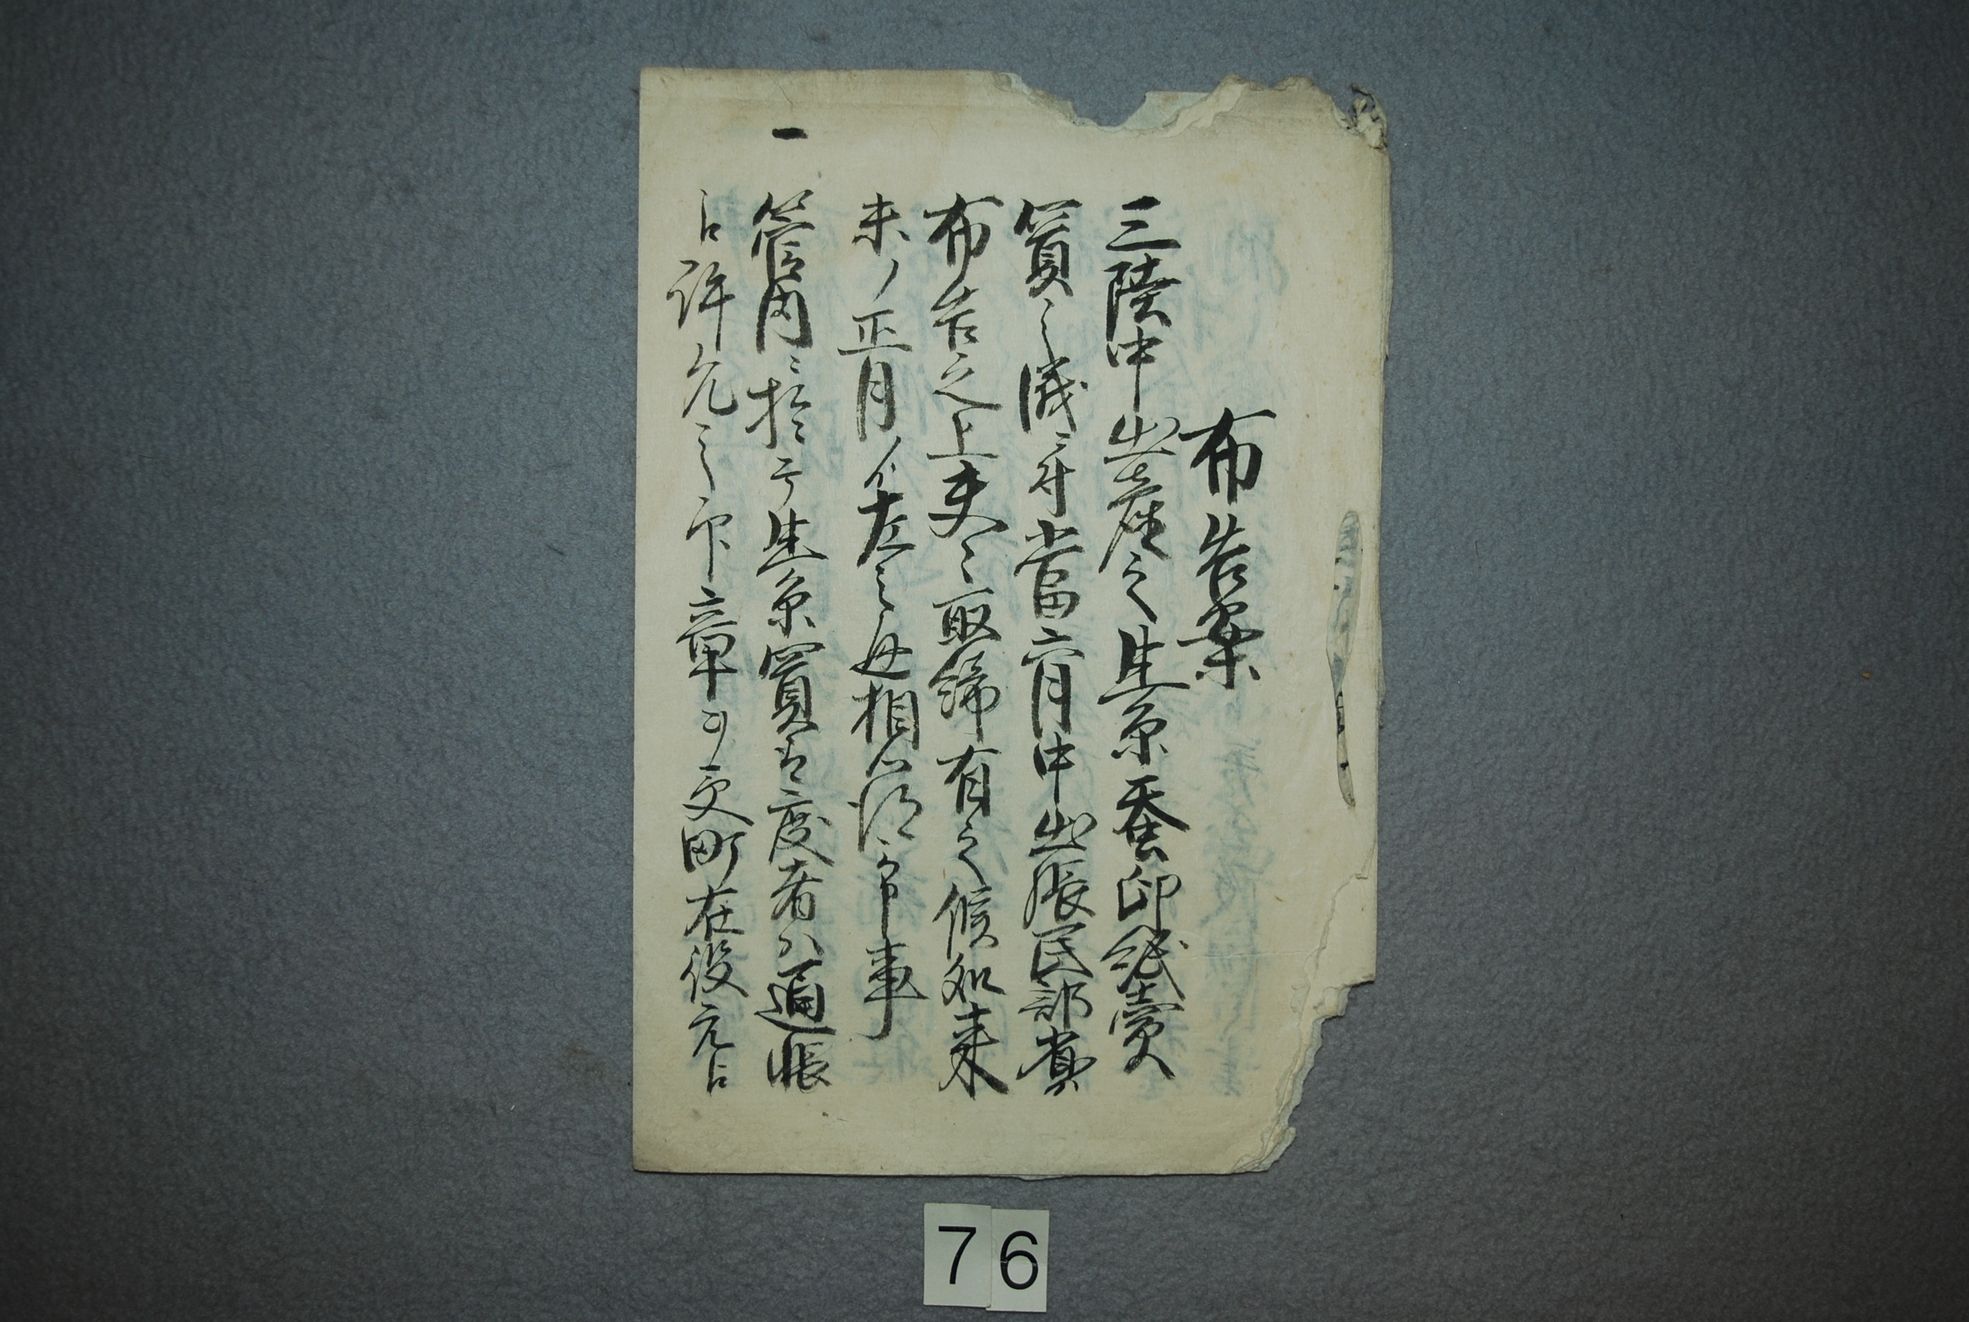 布告案
三陸中出産之生糸蚕印紙売
買之儀ニ付當六月中出張民部省
布告之上夫々取締有之候処来
未ノ正月ゟ左之通相心得可申事
一
管内ニ於テ生糸買受度者ハ通帳
ニ許允之印章ヲ受町在役元ニ
76